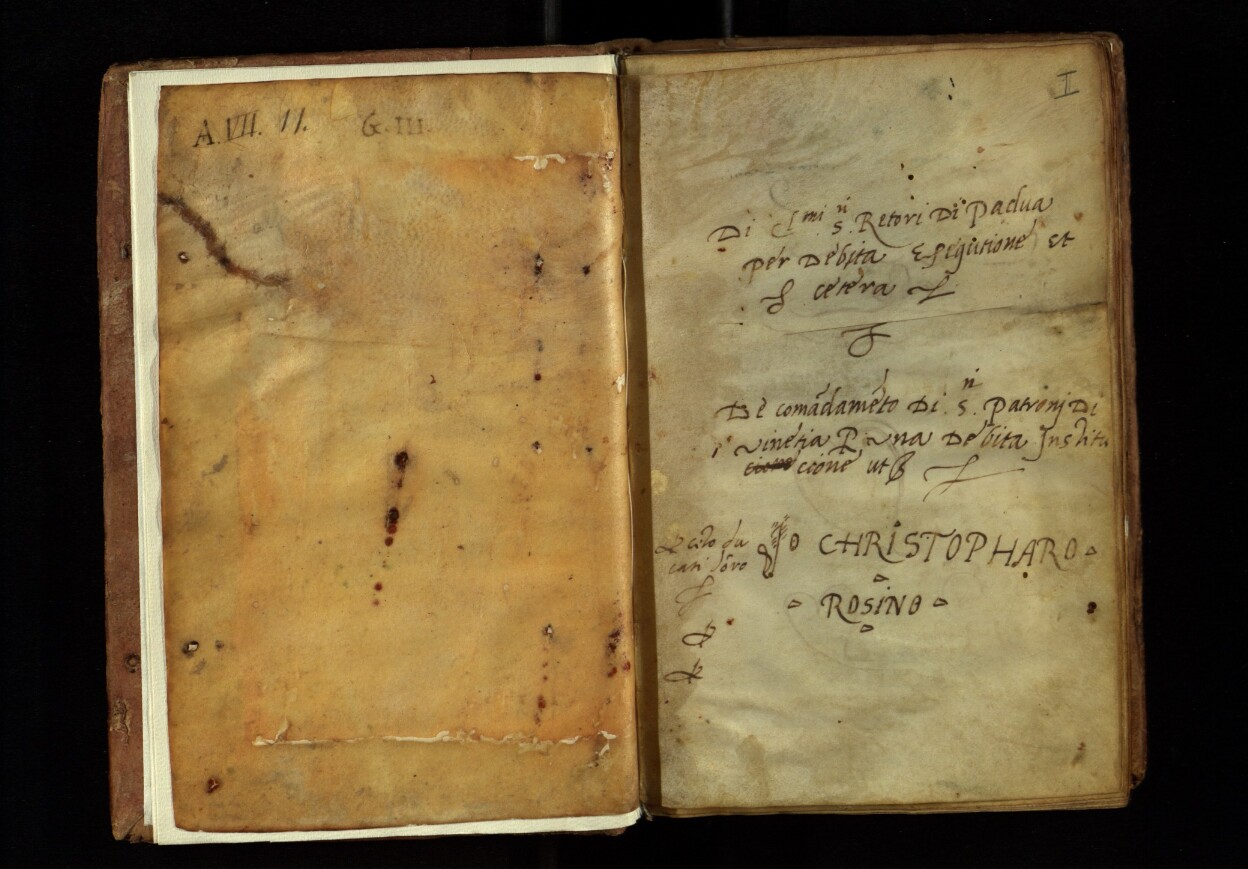 A.VII. 11. G.III.
I
Di Cl mi S.ri Retori Di Padua
per Debita Esegutione et
cetera
De comādamēto Di S.ri Patronj Di
vinetia P una Debita Instita
ccione ut
ceto du
cati doro
Jo CHRISTOPHARO
ROSINO